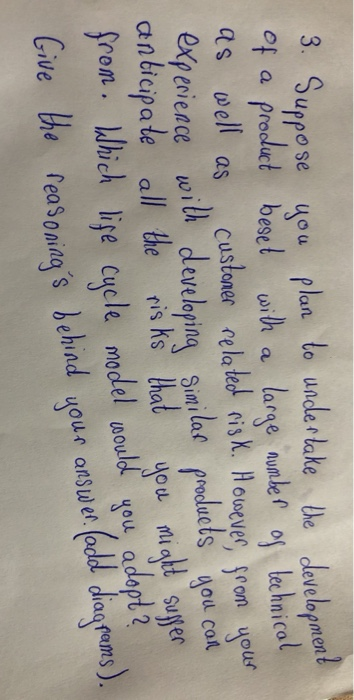 3. Suppose you plan to undertake the development
of a product beset with a large number of technical
as well as customer related risk. However, from your
experience with developing similar products you can
anticipate all the risks that you might suffer
from. Which life cycle model would you adopt?
Give the reasoning's behind your answer. (add diagrams).